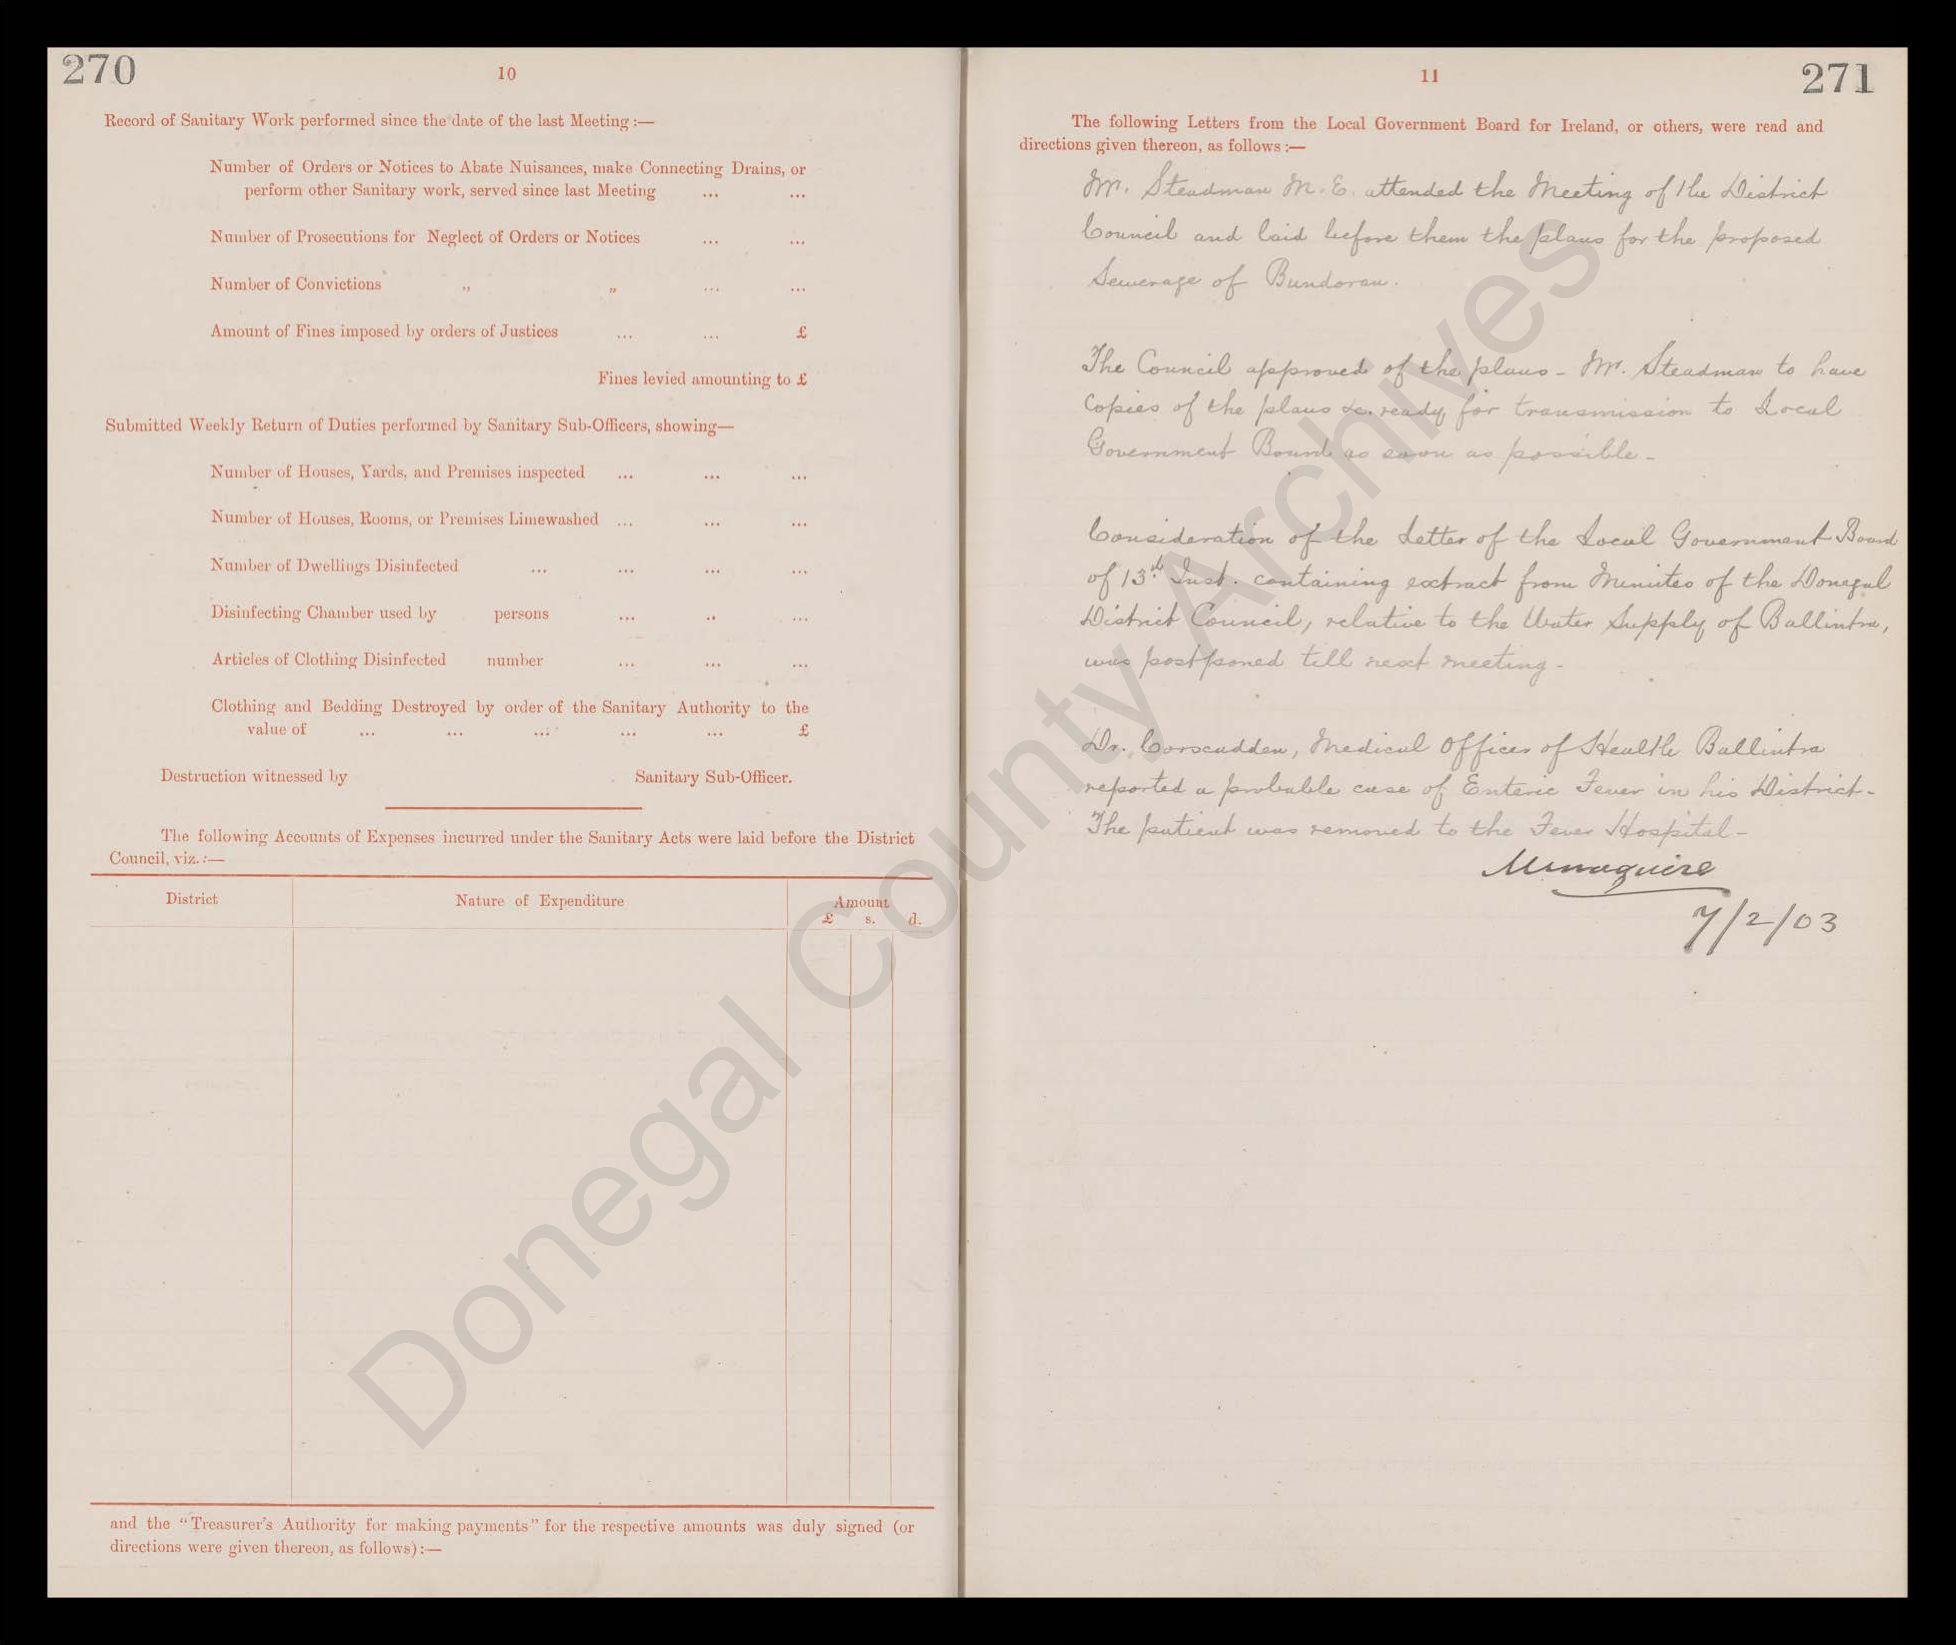 270
10
Record of Sanitary Work performed since the date of the last Meeting :—
Number of Orders or Notices to Abate Nuisances, make Connecting Drains, or
perform other Sanitary work, served since last Meeting ... ...
Number of Prosecutions for Neglect of Orders or Notices ... ...
Number of Convictions „ „ ... ...
Amount of Fines imposed by orders of Justices ... ... £
Fines levied amounting to £
Submitted Weekly Return of Duties performed by Sanitary Sub-Officers, showing—
Number of Houses, Yards, and Premises inspected ... ... ...
Number of Houses, Rooms, or Premises Limewashed ... ... ...
Number of Dwellings Disinfected ... ... ... ...
Disinfecting Chamber used by persons ... .. ...
Articles of Clothing Disinfected number ... ... ...
Clothing and Bedding Destroyed by order of the Sanitary Authority to the
value of ... ... ... ... ... £
Destruction witnessed by Sanitary Sub-Officer.
The following Accounts of Expenses incurred under the Sanitary Acts were laid before the District
Council, viz. :—
District Nature of Expenditure Amount
£ s. d.
and the "Treasurer's Authority for making payments" for the respective amounts was duly signed (or
directions were given thereon, as follows) :—
11
271
The following Letters from the Local Government Board for Ireland, or others, were read and
directions given thereon, as follows :—
Mr. Steadman M.E. attended the Meeting of the District
Council and laid before them the plans for the proposed
Sewerage of Bundoran.
The Council approved of the plans - Mr. Steadman to have
Copies of the plans &c. ready for transmission to Local
Government Board as soon as possible -
Consideration of the Letter of the Local Government Board
of 13th Inst. containing extract from Minutes of the Donegal
District Council, relative to the Water Supply of Ballintra,
was postponed till next meeting -
Dr. Corscadden, Medical Officer of Health Ballintra
reported a probable case of Enteric Fever in his District -
The patient was removed to the Fever Hospital -
7/2/03
Donegal County Archives